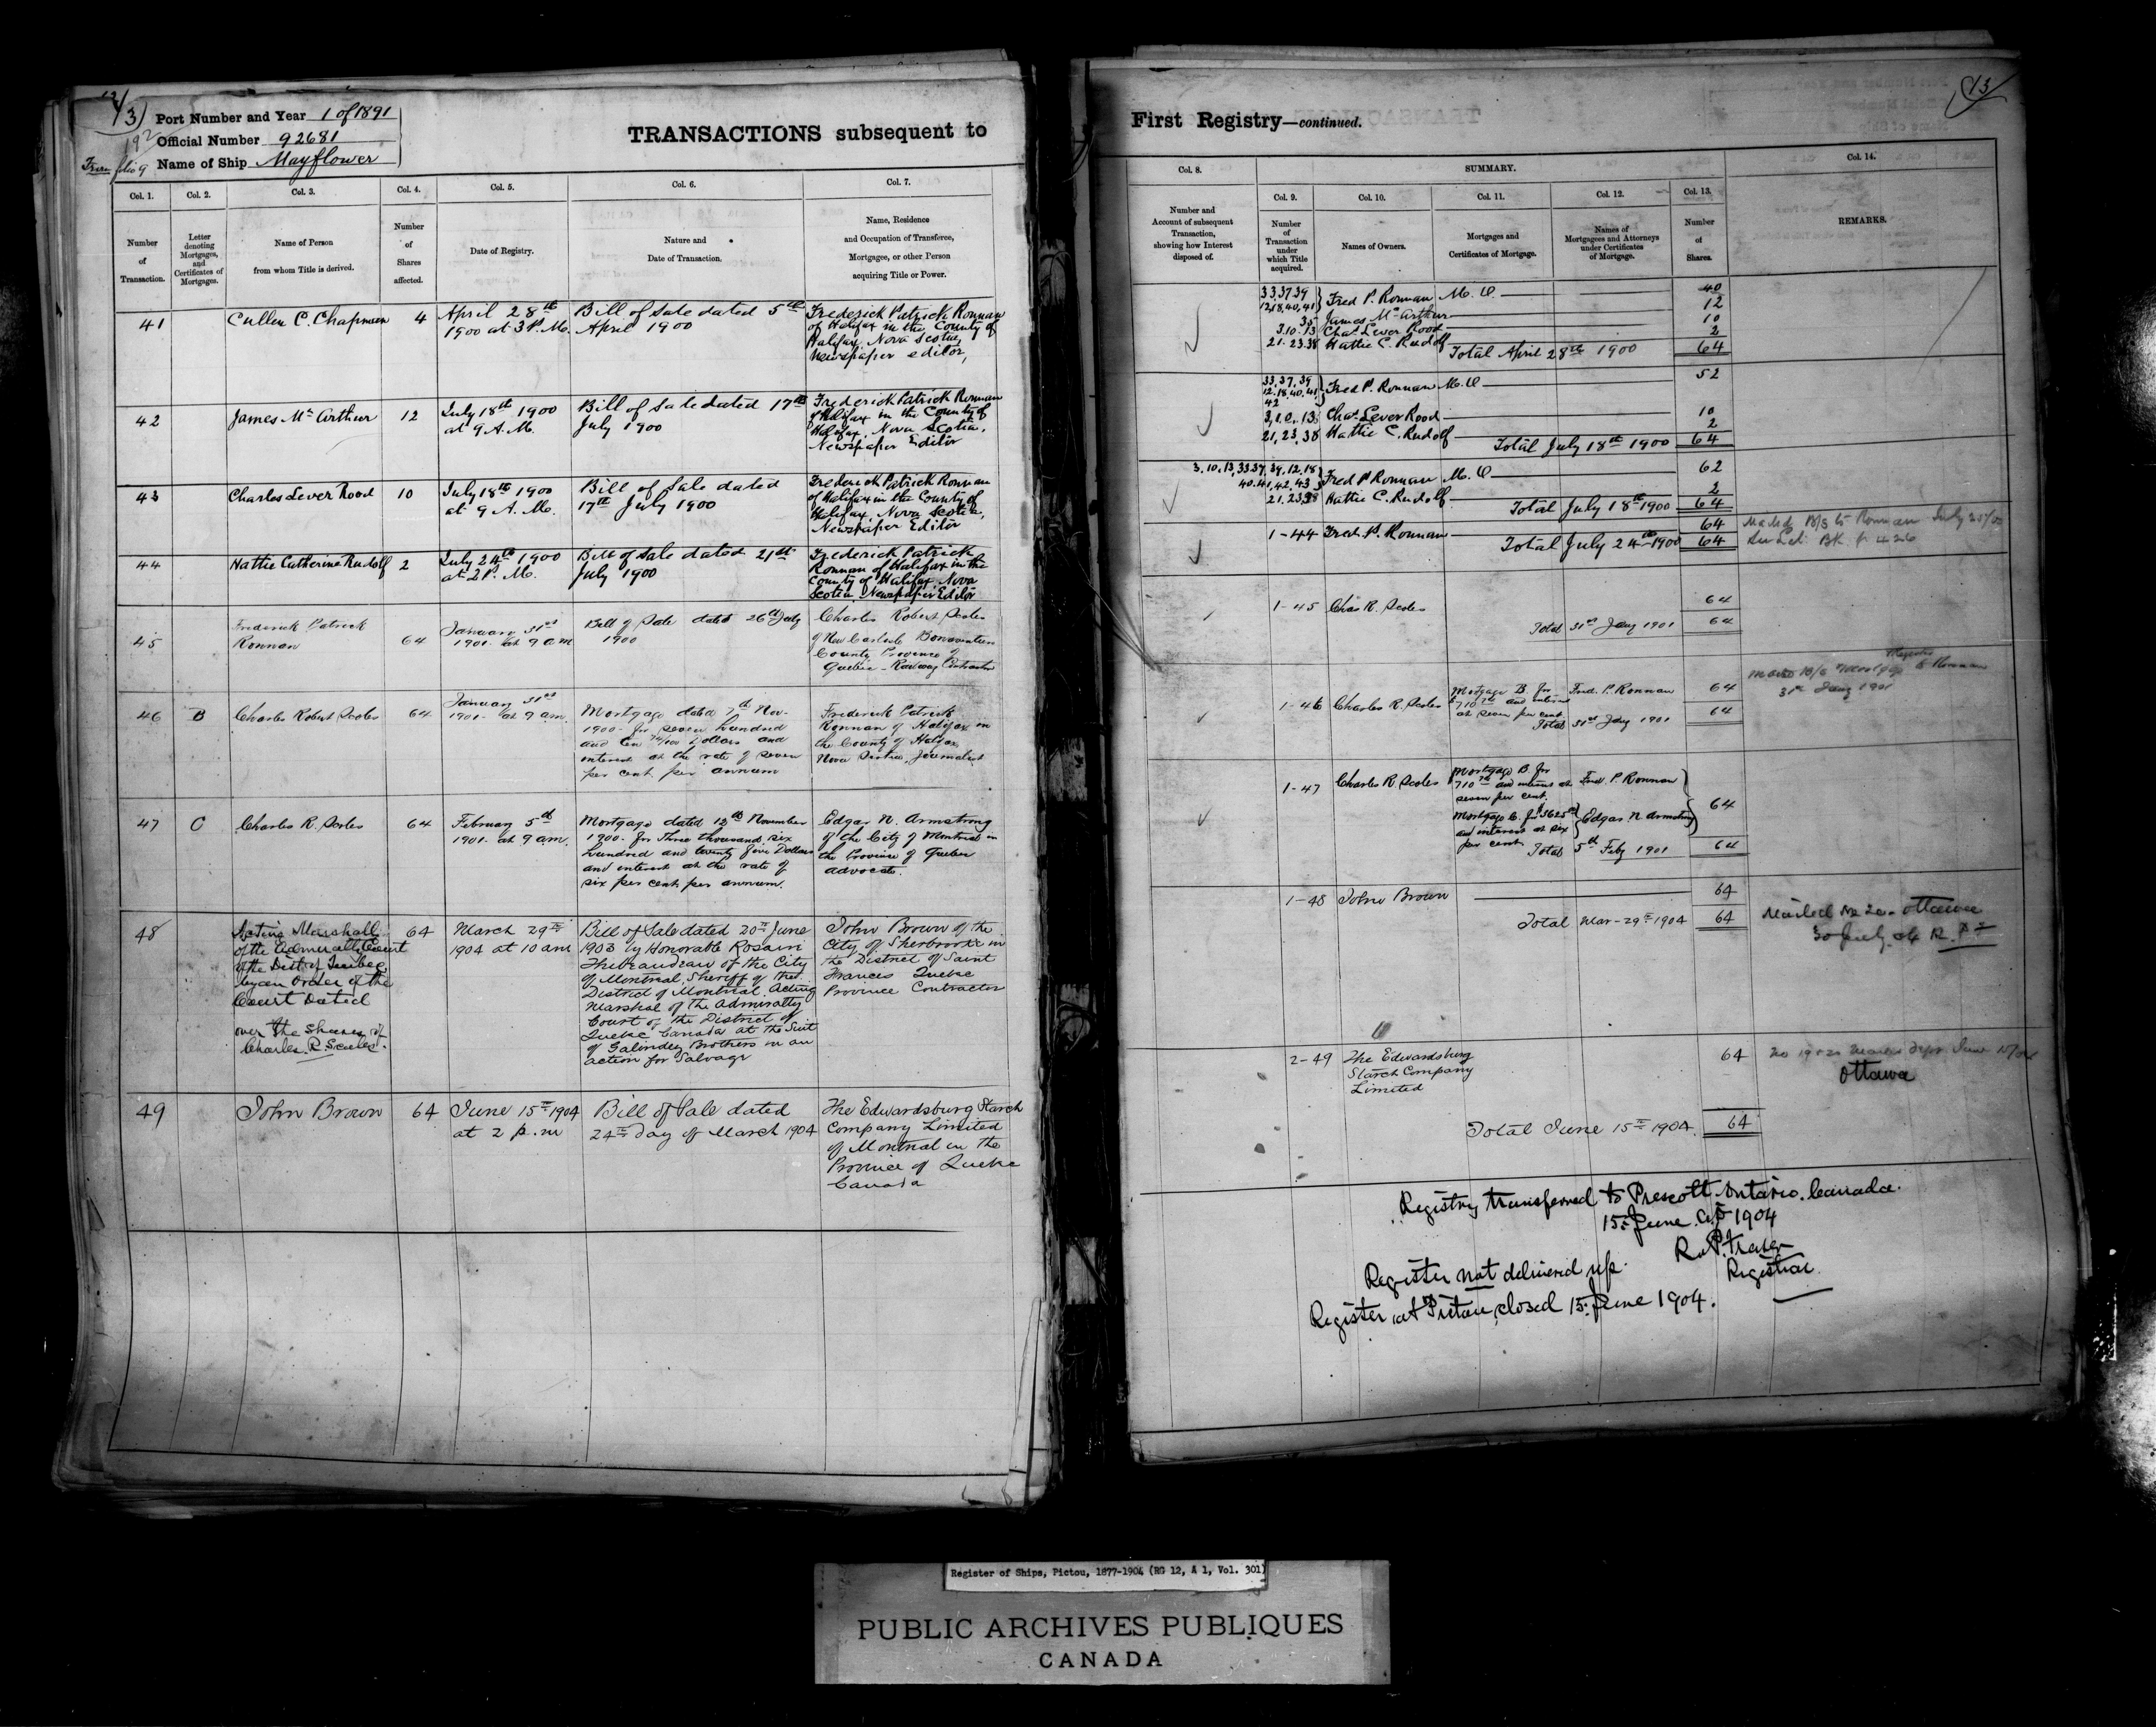 13
Port Number and Year 1 of 1891
Official Number 92681
Name of Ship Mayflower
From folio 9
192
TRANSACTIONS subsequent to
Col. 1.
Number
of
Transaction.
Col. 2.
Letter
denoting
Mortgages,
and
Certificates of
Mortgages.
Col. 3.
Name of Person
from whom Title is derived.
Col. 4.
Number
of
Shares
affected.
Col. 5.
Date of Registry.
Col. 6.
Nature and
Date of Transaction.
Col. 7.
Name, Residence
and Occupation of Transferee,
Mortgagee, or other Person
acquiring Title or Power.
41
Cullen C. Chapman
4
April 28th
1900 at 3 P.M.
Bill of Sale dated 5th
April 1900
Frederick Patrick Ronnan
of Halifax in the County of
Halifax, Nova Scotia,
Newspaper editor,
42
James McArthur
12
July 18th 1900
at 9 A.M.
Bill of Sale dated 17th
July 1900
Frederick Patrick Ronnan
of Halifax in the County of
Halifax, Nova Scotia,
Newspaper Editor
43
Charles Lever Rood
10
July 18th 1900
at 9 A.M.
Bill of Sale dated
17th July 1900
Frederick Patrick Ronnan
of Halifax in the County of
Halifax, Nova Scotia,
Newspaper Editor
44
Hattie Catherine Rudolf
2
July 24th 1900
at 2 P.M.
Bill of Sale dated 21st
July 1900
Frederick Patrick
Ronnan of Halifax in the
County of Halifax Nova
Scotia Newspaper Editor
45
Frederick Patrick
Ronnan
64
January 31st
1901 at 9 am
Bill of Sale dated 26th July
1900
Charles Robert Scoles
of New Carlisle Bonaventure
County Province of
Quebec - Railway Contractor
46
B
Charles Robert Scoles
64
January 31st
1901 at 9 am.
Mortgage dated 7th Nov.
1900 for seven hundred
and ten 74/100 Dollars and
interest at the rate of seven
per cent per annum
Frederick Patrick
Ronnan of Halifax in
the County of Halifax
Nova Scotia, Journalist
47
C
Charles R. Scoles
64
February 5th
1901. at 9 am.
Mortgage dated 12th November
1900. for Three thousand six
hundred and twenty five Dollars
and interest at the rate of
six per cent per annum.
Edgar N. Armstrong
of the City of Montreal in
the Province of Quebec
advocate.
48
Acting Marshall
of the Admiralty Court
of the Dist of Quebec
by an Order of the
Court Dated
over the shares of
Charles R Scoles.
64
March 29th
1904 at 10 am
Bill of Sale dated 20th June
1903 by Honorable Rosaire
Thibaudeau of the City
of Montreal, Sheriff of the
District of Montreal. Acting
Marshal of the Admiralty
Court of the District of
Quebec Canada at the Suit
of Brothers in an
action for Salvage
John Brown of the
City of Sherbrooke in
the District of Saint
Frances Quebec
Province Contractor
49
John Brown
64
June 15th 1904
at 2 p.m
Bill of Sale dated
24th day of March 1904
The Edwardsburg Starch
Company Limited
of Montreal in the
Province of Quebec
Canada
13
First Registry—continued.
Col. 8.
Number and
Account of subsequent
Transaction,
showing how Interest
disposed of.
SUMMARY.
Col. 9.
Number
of
Transaction
under
which Title
acquired.
Col. 10.
Names of Owners.
Col. 11.
Mortgages and
Certificates of Mortgage.
Col. 12.
Names of
Mortgagees and Attorneys
under Certificates
of Mortgage.
Col. 13.
Number
of
Shares.
Col. 14.
REMARKS.
33,37,39
12,18,40,41 } Fred P. Ronnan M.O. 40
35 James McArthur 12
3.10.13 Chas Lever Rood 10
21.23.38 Hattie C. Rudolf 2
Total April 28th 1900 64
33,37,39
12.18.40.41
42 } Fred P. Ronnan M.O 52
3,10,13 Chas Lever Rood 10
21,23,38 Hattie C. Rudolf 2
Total July 18th 1900 64
3.10.13,33.37,39,12.18
40.41,42,43 } Fred P Ronnan M.O 62
21.23.38 Hattie C. Rudolf 2
Total July 18th 1900 64
1-44 Fred. P. Ronnan 64
Total July 24th 1900 64
Mailed B/S to Ronnan July 25/00
Bk p 426
1-45 Chas R. Scoles 64
Total 31st Jany 1901 64
1-46 Charles R. Scoles
Mortgage B. for
$710 74 and interest
at seven per cent.
Fred. P. Ronnan
64
Total 31st Jany 1901 64
Mailed B/S Mortgage to Ronnan
31st Jany 1901
1-47 Charles R Scoles
Mortgage B. for
710 74 and interest at
seven per cent.
Fred P. Ronnan
Mortgage C. for $3625 00
and interest at six
per cent.
Edgar N Armstrong
64
Total 5th Feby 1901 64
1-48 John Brown 64
Total Mar-29th 1904 64
Mailed Ottawa
30 July
2-49 The Edwardsburg
Starch Company
Limited
64
Ottawa
Total June 15th 1904. 64
Registry transferred to Prescott Ontario. Canada.
15th June A.D. 1904
R.P. Fraser
Registrar
Register not delivered up.
Register at Pictou closed 15th June 1904.
Register of Ships, Pictou, 1877-1904 (RG 12, A 1, Vol. 301)
PUBLIC ARCHIVES PUBLIQUES
CANADA